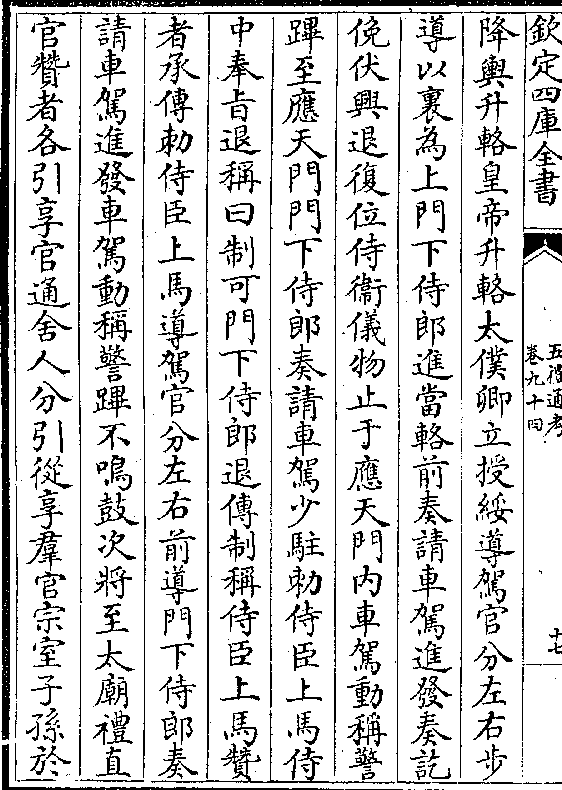 欽定四庫全書
五禮通考
卷九十四
十七
降輿升輅皇帝升輅太僕卿立授綏導駕官分左右步
導以裏為上門下侍郎進當輅前奏請車駕進發奏訖
俛伏興退復位侍衞儀物止于應天門内車駕動稱警
蹕至應天門門下侍郎奏請車駕少駐勅侍臣上馬侍
中奉旨退稱曰制可門下侍郎退傳制稱侍臣上馬贊
者承傳勅侍臣上馬導駕官分左右前導門下侍郎奏
請車駕進發車駕動稱警蹕不鳴鼓次將至太廟禮直
官贊者各引享官通舍人分引從享羣官宗室子孫於